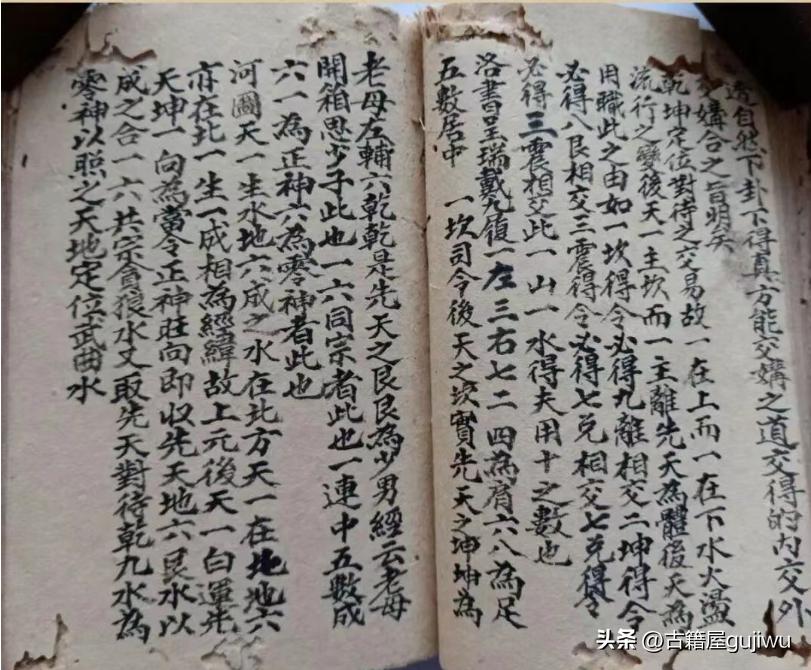 透自然下卦下得真方能交媾之道交得的內交外
交媾合之旨明矣
乾坤定位對待之交易故一在上而一在下水火盪
流行之變後天一主坎而一主離先天為體後天為
用職此之由如一坎得令必得九離相交二坤得令
必得八艮相交三震得令必得七兌相交七兌得令
必得三震相交此一山一水得夫用十之數也
洛書呈瑞戴九履一左三右七二四為肩六八為足
五數居中
一坎司令後天之坎實先天之坤坤為
老母左輔六乾乾是先天之艮艮為少男經云老母
開箱思少子此也一六同宗者此也一連中五數成
六一為正神六為零神者此也
河圖天一生水地六成之水在北方天一在地地六
亦在北一生一成相為經緯故上元後天一白運先
天坤一向為當令正神旺向即收先天地六艮水以
成之合一六共宗貪狼水又取先天對待乾九水為
零神以照之天地定位武曲水
头条 @古籍屋gujiwu